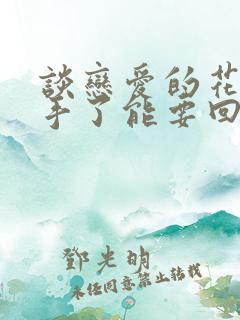 談戀愛的花
手了能要回
鄧光明
未任同意禁止转载